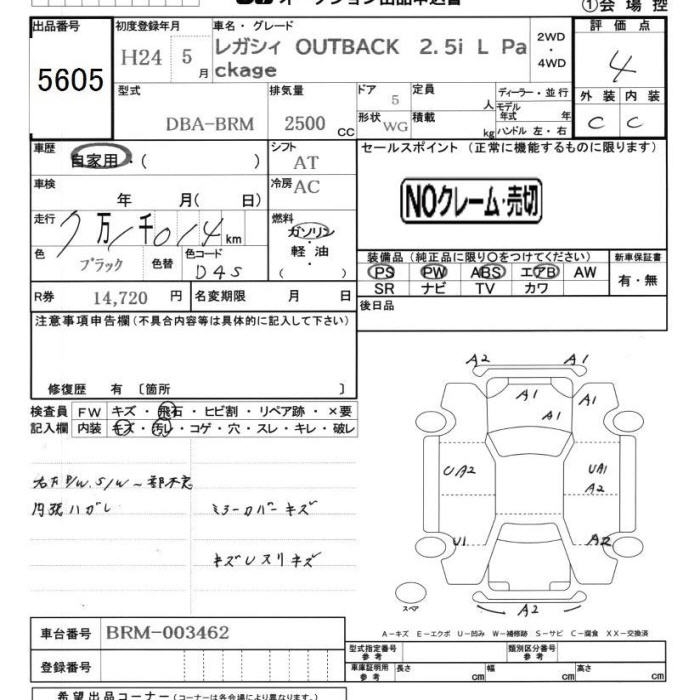 オークション出品申込書
①会場控
出品番号 初度登録年月 車名・グレード 評価点
5605 H24 5月 レガシィ OUTBACK 2.5i L Pa 2WD・4WD 4
ckage
型式 排気量 ドア 5 定員 人 ディーラー・並行 外装 内装
DBA-BRM 2500 CC 形状 WG 積載 kg モデル年式 年 C C
ハンドル 左・右
車歴 自家用・( ) シフト AT セールスポイント (正常に機能するものに限ります)
車検 年 月( 日) 冷房 AC
NOクレーム・売切
走行 7万1千014km 燃料 ガソリン・軽油・( )
色 ブラック 色替 色コード D4S
装備品 (純正品に限り〇をつけてください) 新車保証書
PS PW ABS エアB AW 有・無
SR ナビ TV カワ
R券 14,720 円 名変期限 月 日 後日品
注意事項申告欄 (不具合内容等は具体的に記入して下さい)
修復歴 有 〔箇所 〕
検査員 FW キズ・飛石・ヒビ割・リペア跡・×要
記入欄 内装 キズ・汚レ・コゲ・穴・スレ・キレ・破レ
内張ハガレ ミラーカバーキズ
キズUスリキズ
A2 A1
A1
A1 A1
UA2 UA1
A2
U1 A2
スペア A2
A-キズ E-エクボ U-凹み W-補修跡 S-サビ C-腐食 XX-交換済
車台番号 BRM-003462
型式指定番号 参考 類別区分番号 参考
登録番号
車庫証明用 参考 長さ cm 幅 cm 高さ cm
希望出品コーナー (コーナーは各会場により異なります。)